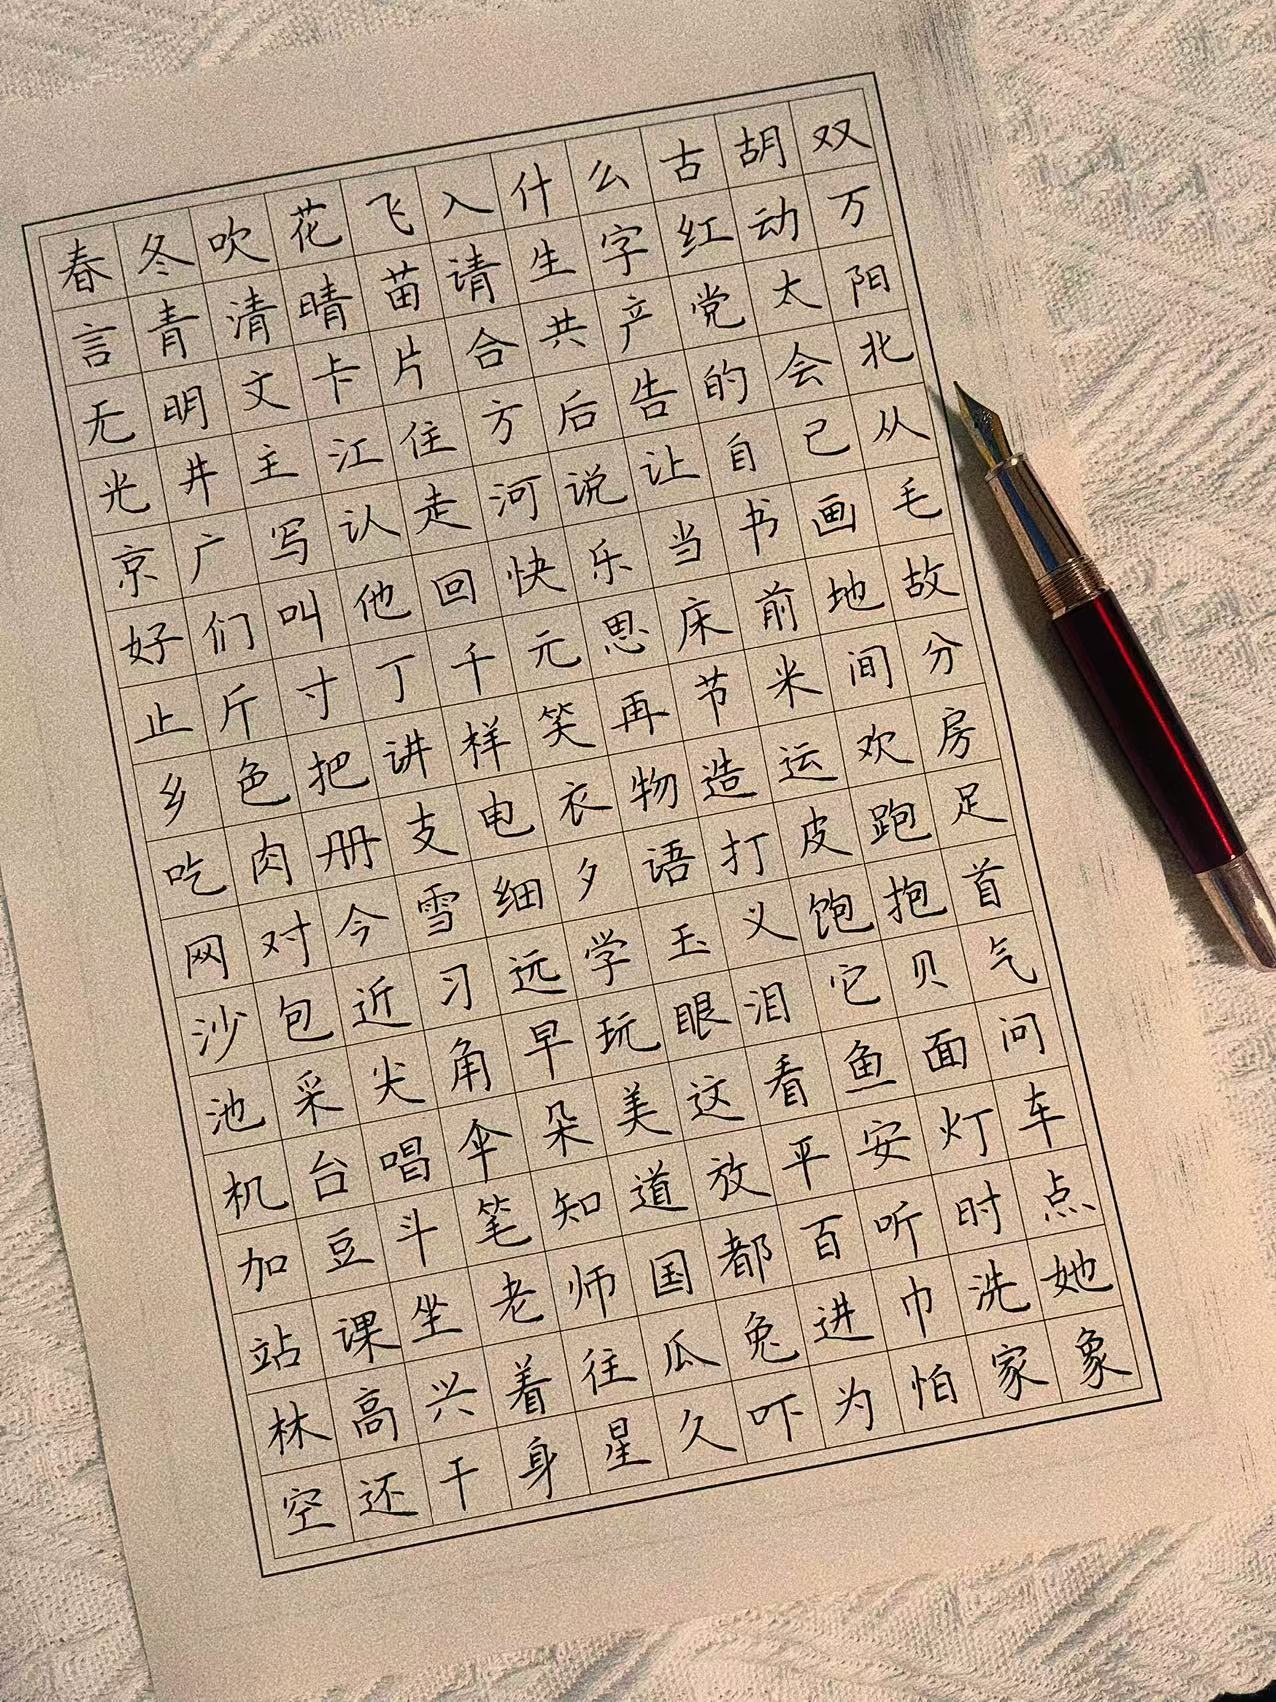 春冬吹花飞入什么古胡双
言青清晴苗请生字红动万
无明文卡片合共产党太阳
光井主江住方后告的会北
京广写认走河说让自己从
好们叫他回快乐当书画毛
止斤寸丁千元思床前地故
乡色把讲样笑再节米间分
吃肉册支电衣物造运欢房
网对今雪细夕语打皮跑足
沙包近习远学玉义饱抱首
池采尖角早玩眼泪它贝气
机台唱伞朵美这看鱼面问
加豆斗笔知道放平安灯车
站课坐老师国都百听时点
林高兴着往瓜兔进巾洗她
空还干身星久吓为怕家象